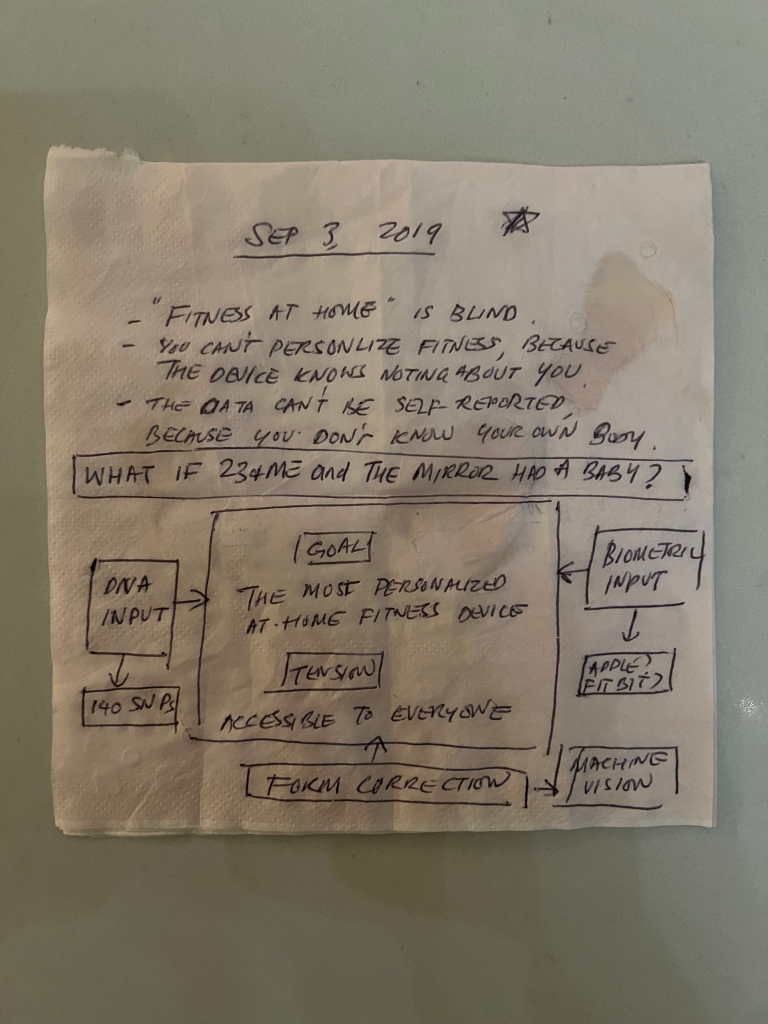 SEP 3, 2019
- "FITNESS AT HOME" IS BLIND.
- YOU CAN'T PERSONLIZE FITNESS, BECAUSE
THE DEVICE KNOWS NOTING ABOUT YOU.
- THE DATA CAN'T BE SELF-REPORTED,
BECAUSE YOU DON'T KNOW YOUR OWN BODY.
WHAT IF 23&ME and THE MIRROR HAD A BABY?
DNA
INPUT
140 SNPs
GOAL
THE MOST PERSONALIZED
AT-HOME FITNESS DEVICE
TENSION
ACCESSIBLE TO EVERYONE
BIOMETRIC
INPUT
APPLE?
FITBIT?
FORM CORRECTION
MACHINE
VISION